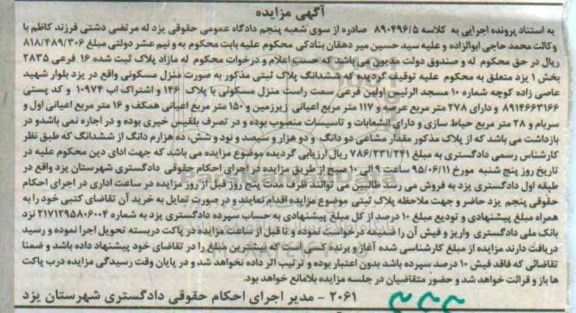 آگهی مزایده
به استناد پرونده اجرایی به کلاسه ۸۹۰۴۹۶/۵ صادره از سوی شعبه پنجم دادگاه عمومی حقوقی یزد له مرتضی دشتی فرزند کاظم با
وکالت محمد حاجی ابوالزاده و علیه سید حسین میر دهقان بنادکی محکوم علیه بابت محکوم به و نیم عشر دولتی مبلغ ۸۱۸/۴۸۹/۳۰۶
ریال در حق محکوم له و صندوق دولت مدیون می باشد که حسب اعلام و درخواست محکوم له مازاد پلاک ثبت شده ۱۶ فرعی ۲۸۳۵
بخش ۱ یزد متعلق به محکوم علیه توقیف گردیده که ششدانگ پلاک ثبتی مذکور به صورت منزل مسکونی واقع در یزد بلوار شهید
عاصی زاده کوچه شماره ۱۰ مسجد الرئیس اولین فرعی سمت راست منزل مسکونی با پلاک ۱۴۶ و اشتراک اب ۱۰۹۷۴ و کد پستی
۸۹۱۴۶۶۳۱۶۶ و دارای ۲۷۸ متر مربع عرصه و ۱۱۷ متر مربع اعیانی زیرزمین و ۱۵۰ متر مربع اعیانی همکف و ۱۶ متر مربع اعیانی اول و
سربام و ۲۸ متر مربع حیاط سازی و دارای انشعابات و تاسیسات منصوب بوده و در تصرف بلقیس خیری بوده و در اجاره نمی باشد و در
بازداشت می باشد که از پلاک مذکور مقدار مشاعی دو دانگ و دو هزار و سیصد و نود و شش، ده هزارم دانگ از ششدانگ که طبق نظر
کارشناس رسمی دادگستری به مبلغ ۷۸۶/۲۳۱/۲۴۱ ریال ارزیابی گردیده موضوع مزایده می باشد که جهت ادای دین محکوم علیه در
تاریخ روز پنج شنبه مورخ ۹۵/۰۶/۱۱ ساعت ۹ صبح از طریق مزایده در اجرای احکام حقوقی دادگستری شهرستان یزد واقع در
طبقه اول دادگستری یزد به فروش می رسد طالبین می توانند ظرف مدت پنج روز قبل از روز مزایده در ساعت اداری در اجرای احکام
حقوقی پنجم یزد حاضر و جهت ملاحظه پلاک ثبتی موضوع مزایده اقدام نمایند و در صورت تمایل به خرید آن تقاضای کتبی خود را به
همراه مبلغ پیشنهادی و تودیع مبلغ ۱۰ درصد از کل مبلغ پیشنهادی به حساب سپرده دادگستری یزد به شماره ۲۱۷۱۲۹۵۸۰۶۰۰۴ نزد
بانک ملی دادگستری واریز و فیش آن را ضمیمه درخواست نموده و تا قبل از ساعت مزایده در پاکت دربسته تحویل اجرا نموده و رسید
دریافت دارند مزایده از مبلغ کارشناسی شده آغاز و برنده کسی است که بیشترین مبلغ را در تقاضای خود پیشنهاد داده باشد و ضمنا
تقاضائی که فاقد فیش ۱۰ درصد سپرده باشد بدون اعتبار بوده و ترتیب اثر داده نخواهد شد و در پایان وقت رسیدگی مزایده درب پاکت
ها باز و قرائت خواهد شد و حضور متقاضیان در جلسه مزایده بلامانع خواهد بود.
۲۰۶۱ - مدیر اجرای احکام حقوقی دادگستری شهرستان یزد